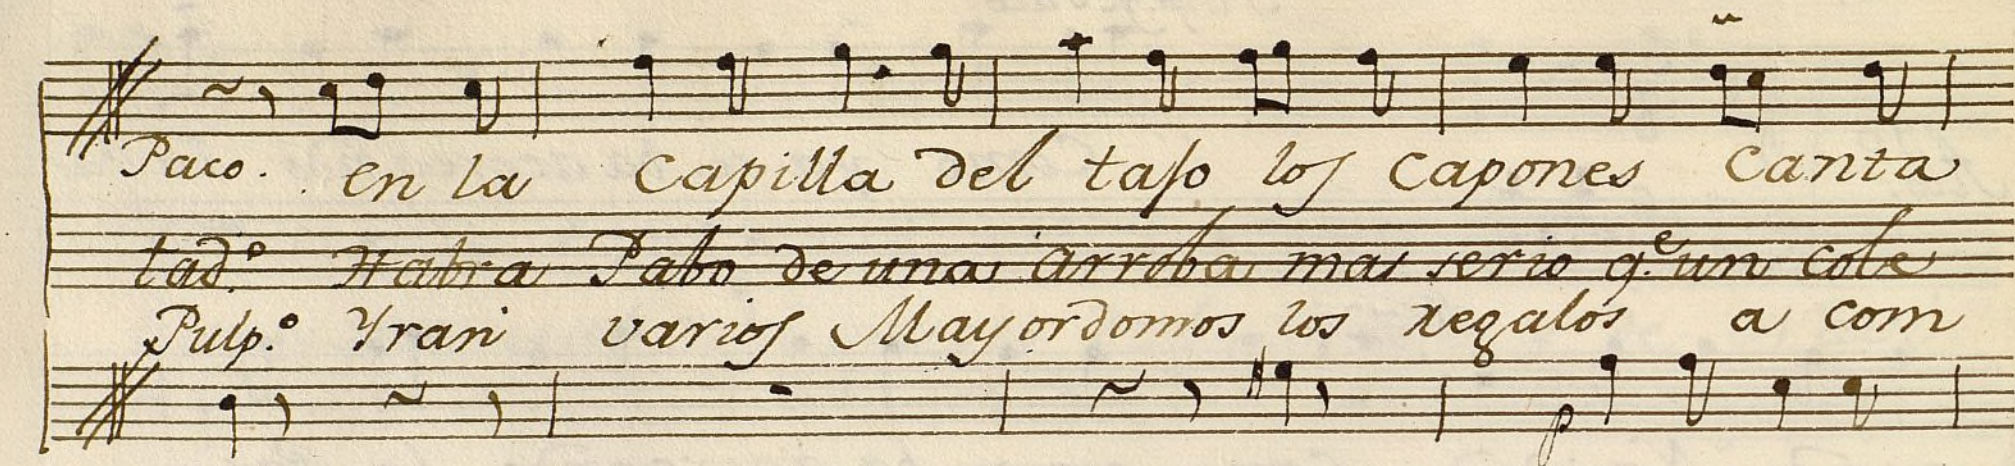 Paco. en la capilla del taſo loſ capones canta
tad.º Habra Pabo de una arroba mas serio q.e un cole
Pulp.º Yran varioſ Mayordomos los regalos a com
p